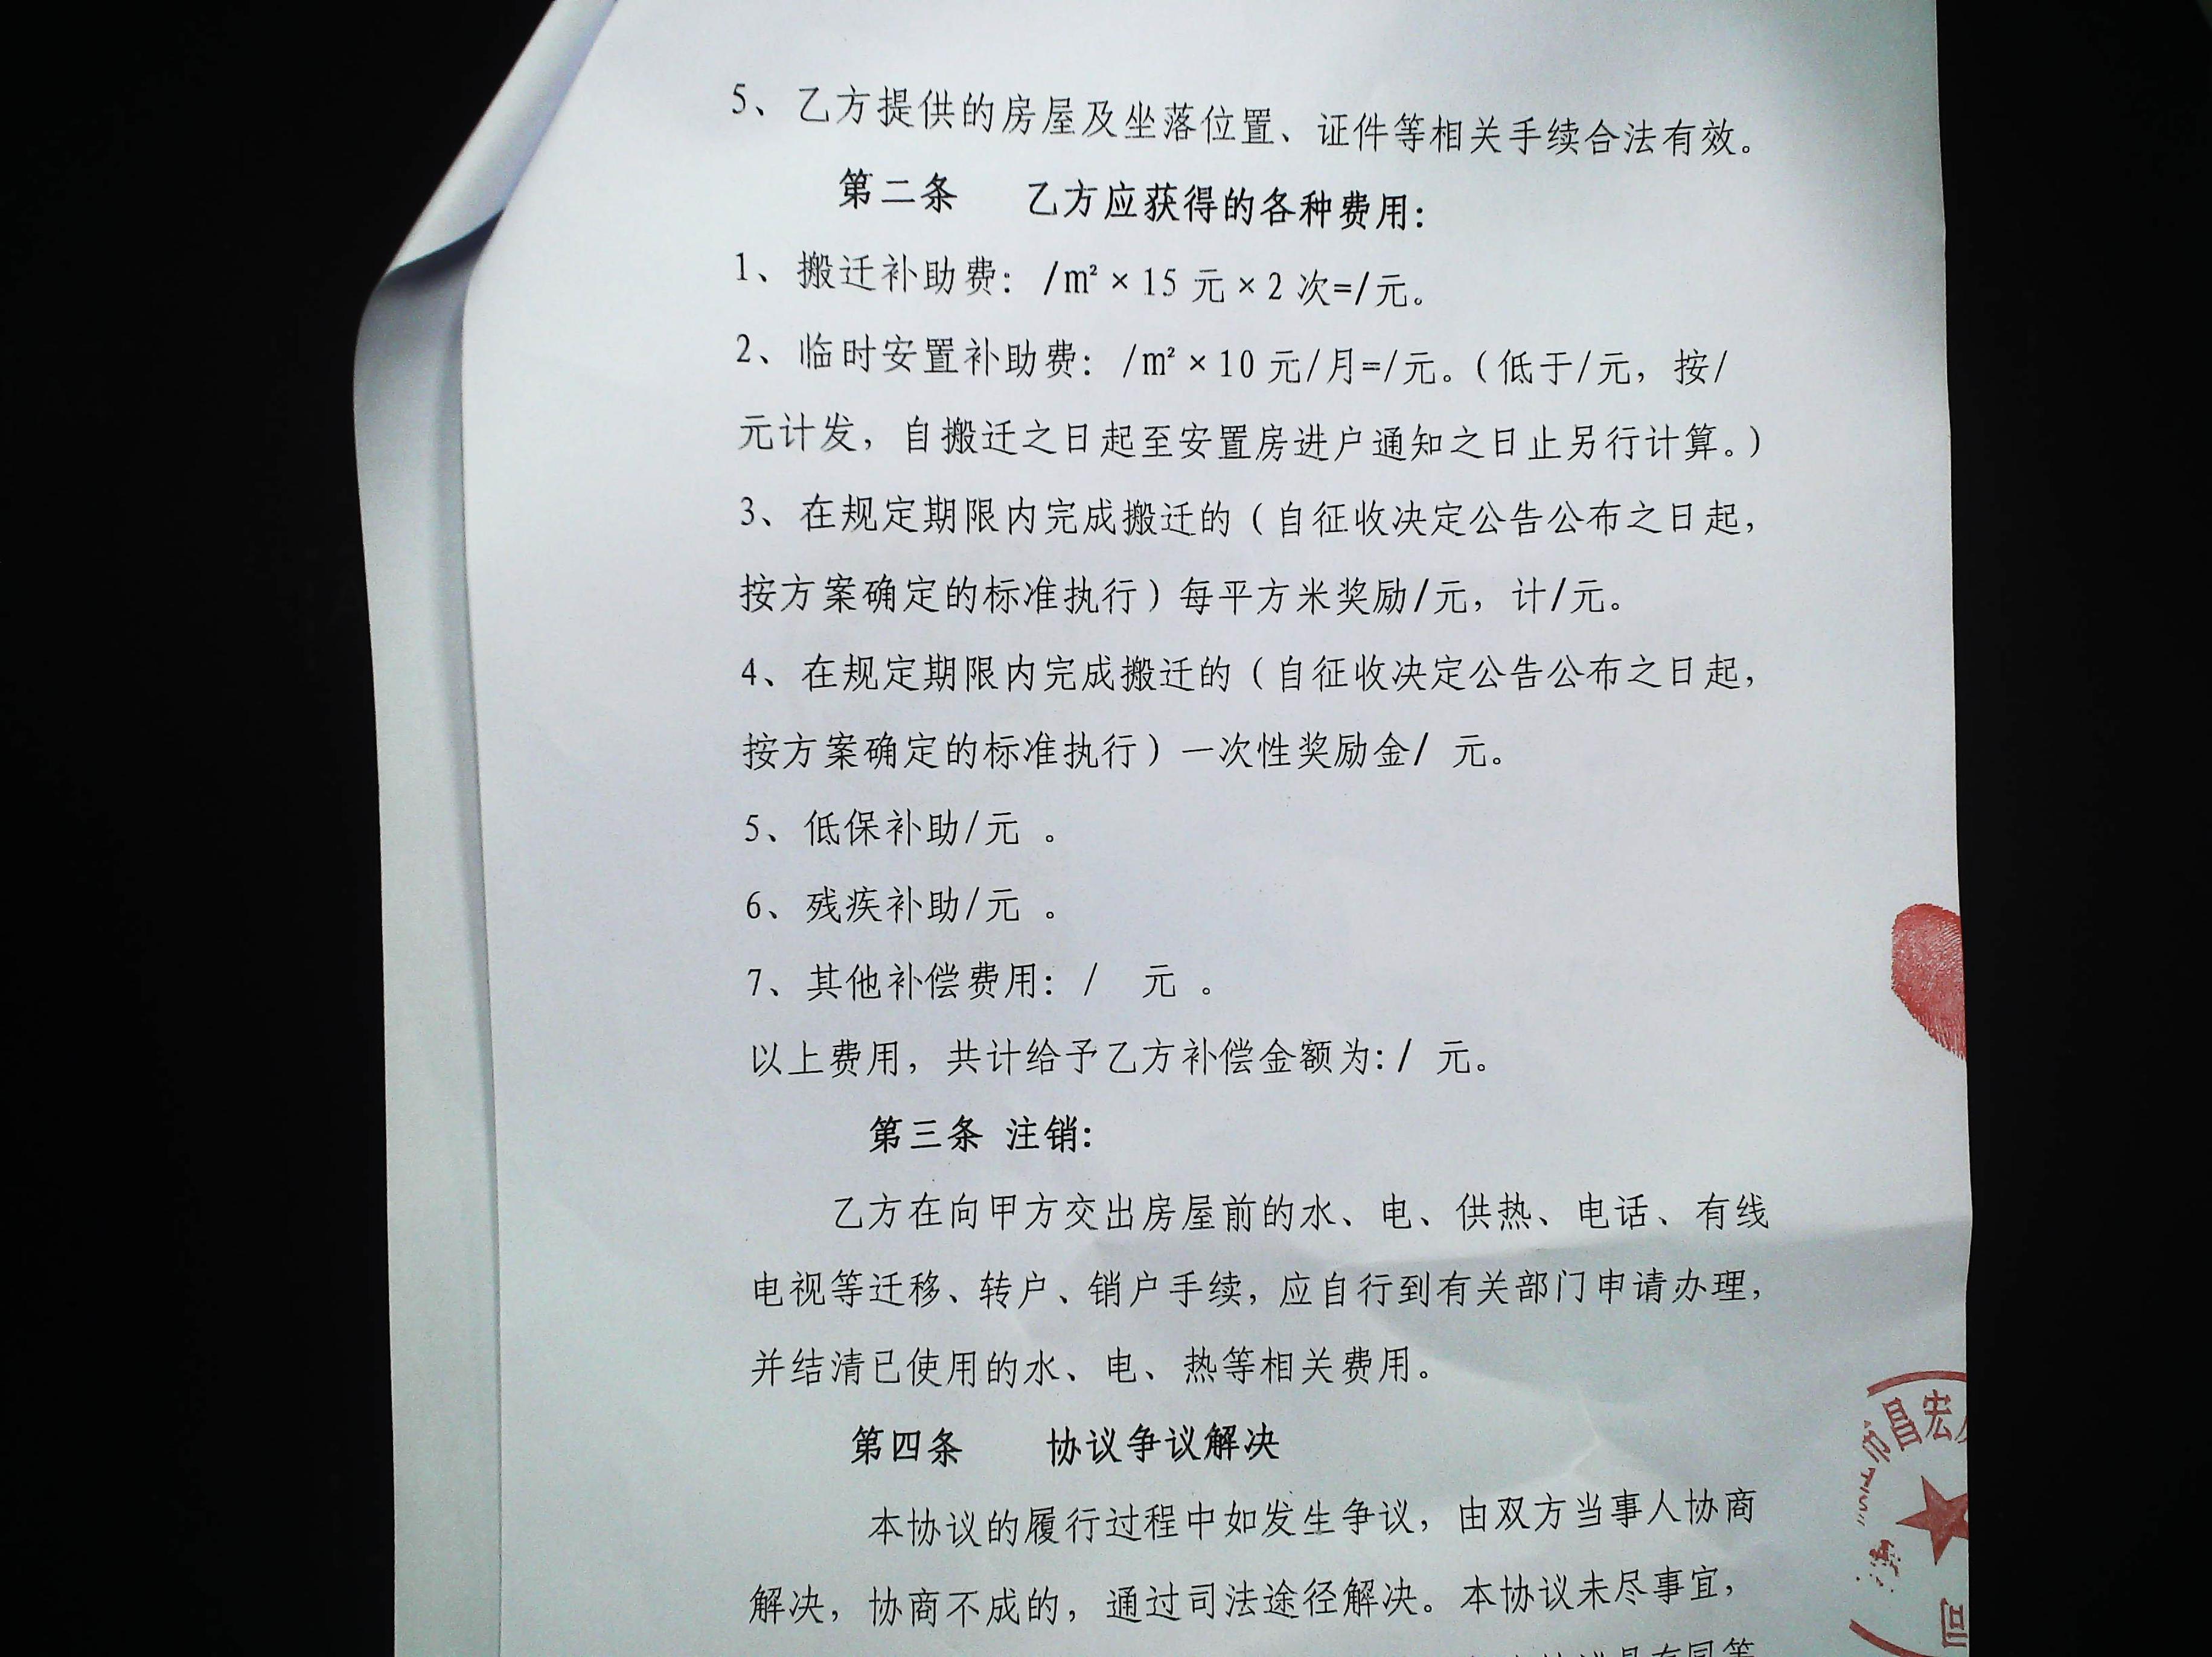 5、乙方提供的房屋及坐落位置、证件等相关手续合法有效。
第二条 乙方应获得的各种费用：
1、搬迁补助费：/㎡×15元×2次=/元。
2、临时安置补助费：/㎡×10元/月=/元。（低于/元，按/
元计发，自搬迁之日起至安置房进户通知之日止另行计算。）
3、在规定期限内完成搬迁的（自征收决定公告公布之日起，
按方案确定的标准执行）每平方米奖励/元，计/元。
4、在规定期限内完成搬迁的（自征收决定公告公布之日起，
按方案确定的标准执行）一次性奖励金/ 元。
5、低保补助/元 。
6、残疾补助/元 。
7、其他补偿费用：/ 元 。
以上费用，共计给予乙方补偿金额为：/ 元。
第三条 注销：
乙方在向甲方交出房屋前的水、电、供热、电话、有线
电视等迁移、转户、销户手续，应自行到有关部门申请办理，
并结清已使用的水、电、热等相关费用。
第四条 协议争议解决
本协议的履行过程中如发生争议，由双方当事人协商
解决，协商不成的，通过司法途径解决。本协议未尽事宜，
具有同等
市昌宏
司